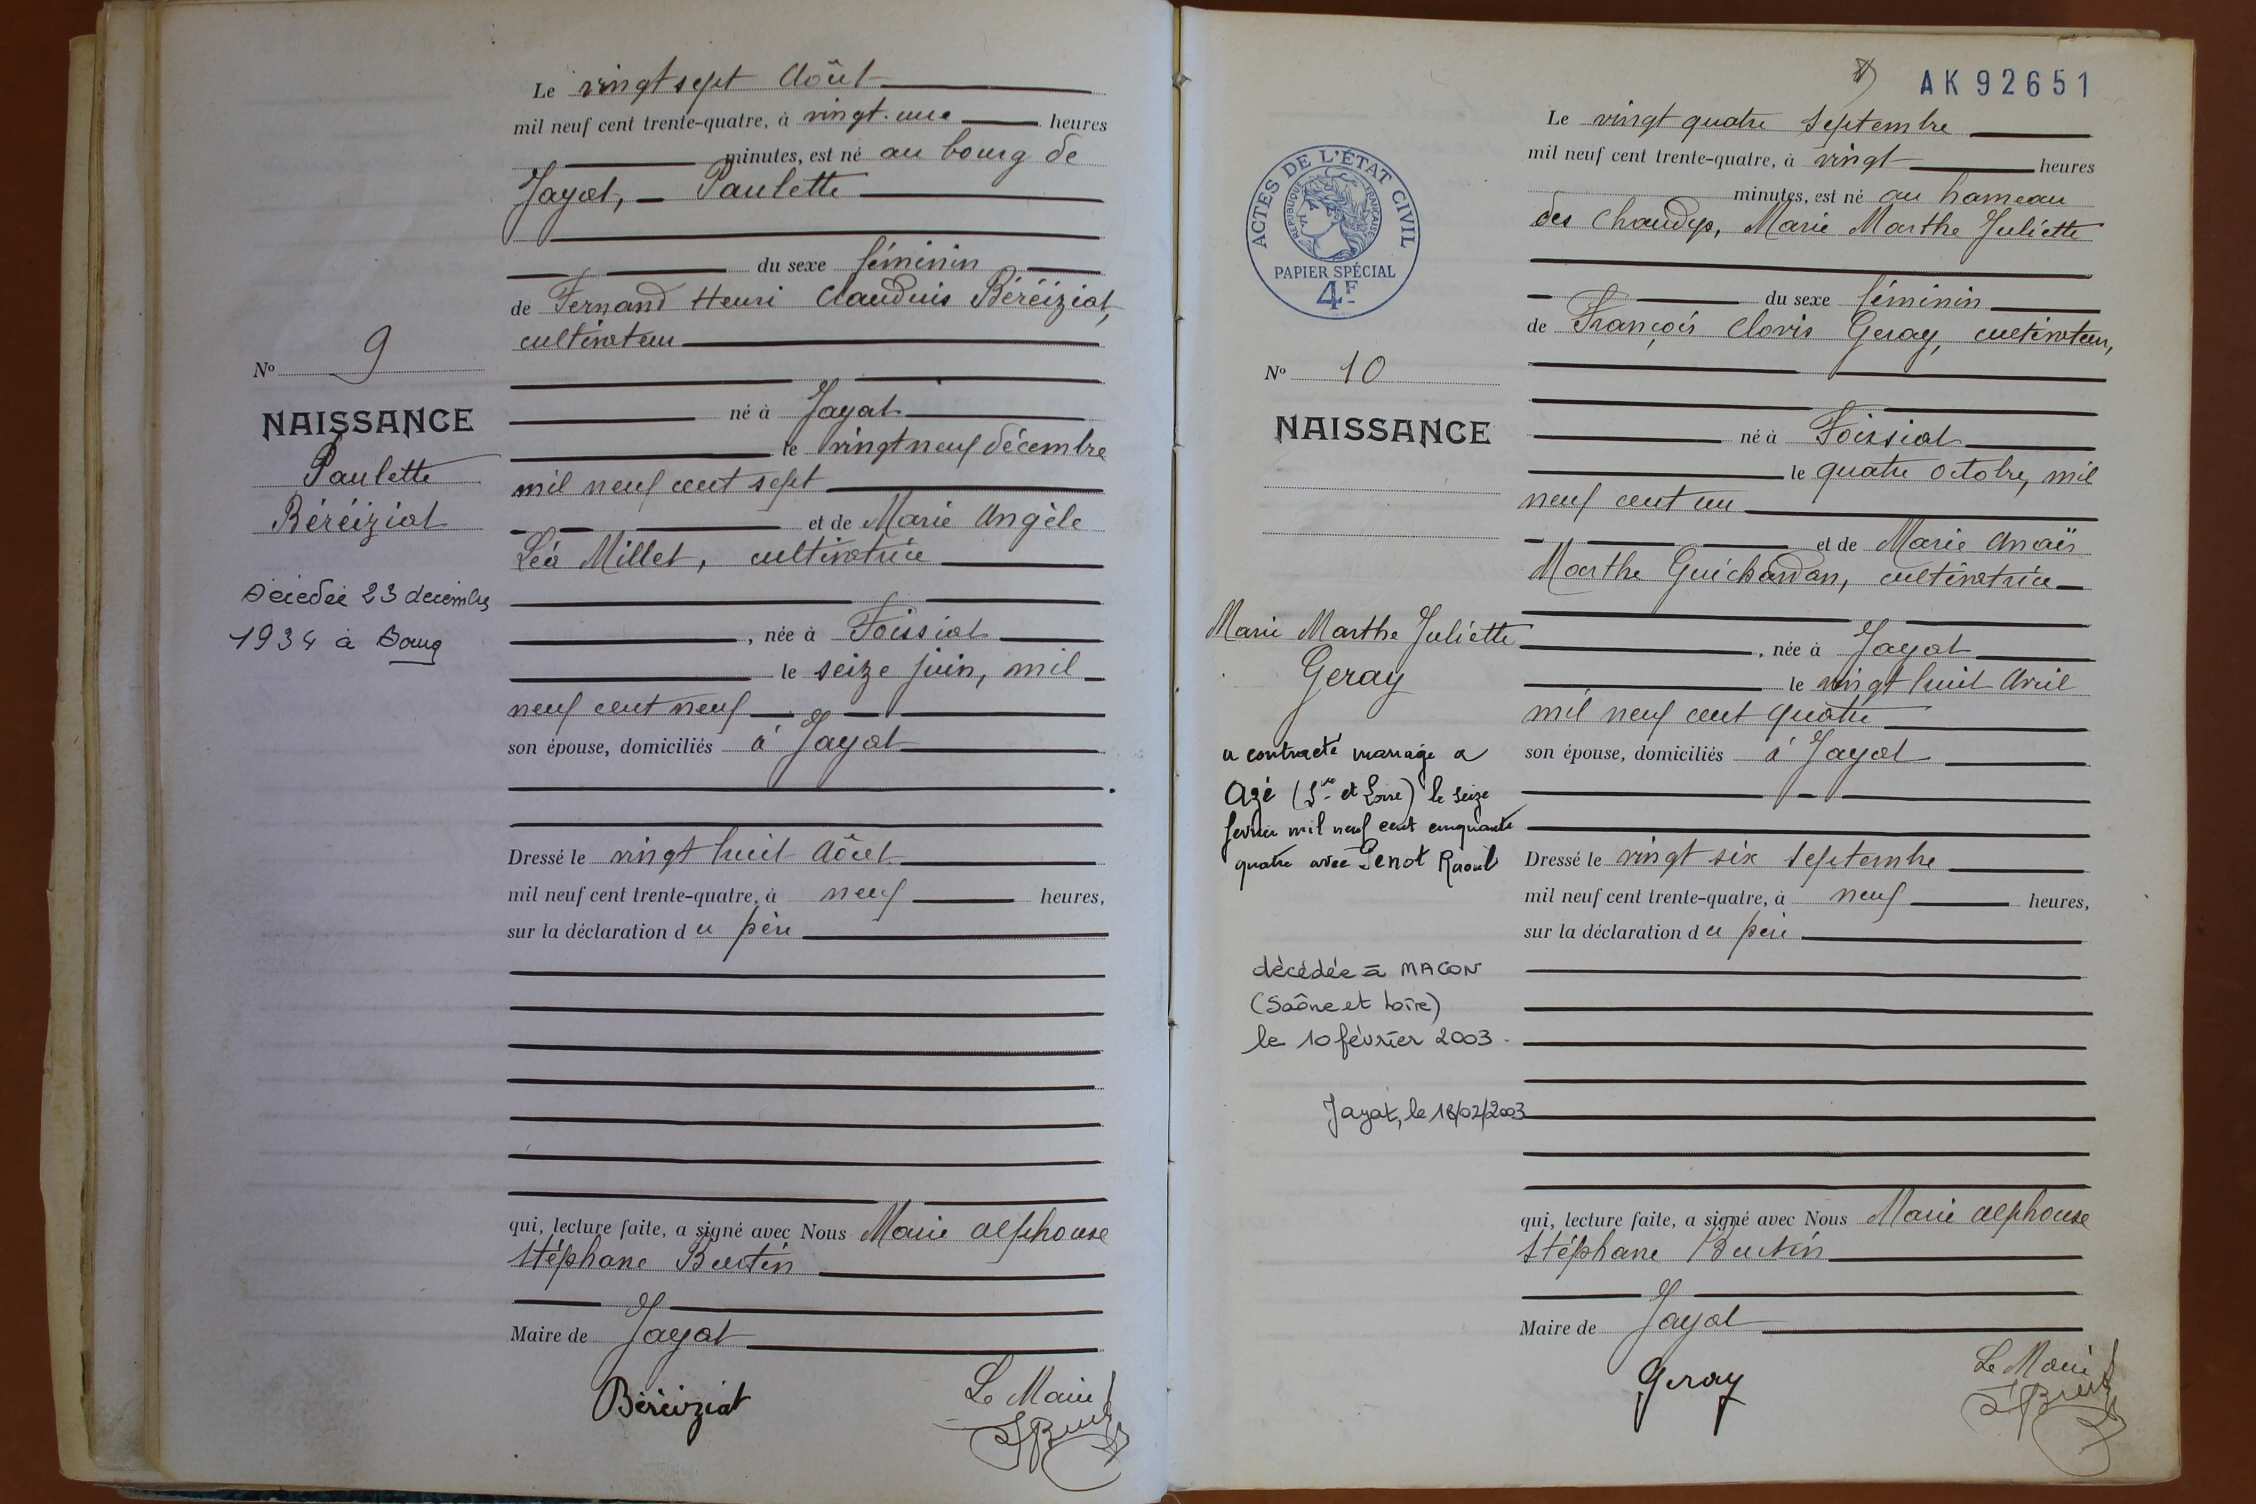 Le vingt sept Août
mil neuf cent trente-quatre, à vingt-une heures
minutes, est né au bourg de
Jayat, Paulette
du sexe féminin
de Fernand Henri Claudius Béréiziat,
cultivateur
né à Jayat
le vingt neuf décembre
mil neuf cent sept
et de Marie Angèle
Léa Millet, cultivatrice
, née à Foissiat
le seize juin, mil
neuf cent neuf
son épouse, domiciliés à Jayat
Dressé le vingt huit Août
mil neuf cent trente-quatre, à neuf heures,
sur la déclaration du père
qui, lecture faite, a signé avec Nous Marie Alphonse
Stéphane Burtin
Maire de Jayat
Béréiziat
Le Maire
No 9
NAISSANCE
Paulette
Béréiziat
Décédée 23 décembre
1934 à Bourg
AK 92651
Le vingt quatre Septembre
mil neuf cent trente-quatre, à vingt heures
minutes, est né au hameau
des Marie Marthe Juliette
du sexe féminin
de François Clovis Geray, cultivateur,
né à Foissiat
le quatre Octobre, mil
neuf cent un
et de Marie Anaïs
Marthe Guichardan, cultivatrice
, née à Jayat
le vingt huit Avril
mil neuf cent quatre
son épouse, domiciliés à Jayat
Dressé le vingt six Septembre
mil neuf cent trente-quatre, à neuf heures,
sur la déclaration du père
qui, lecture faite, a signé avec Nous Marie Alphonse
Stéphane Burtin
Maire de Jayat
Geray
Le Maire
ACTES DE L'ÉTAT CIVIL
RÉPUBLIQUE FRANÇAISE
PAPIER SPÉCIAL
4F
No 10
NAISSANCE
Marie Marthe Juliette
Geray
a contracté mariage a
Azé (Sne et Loire) le seize
fevrier mil neuf cent cinquante
quatre avec Raoul
décédée à MACON
(Saône et Loire)
le 10 février 2003.
Jayat, le 18/02/2003